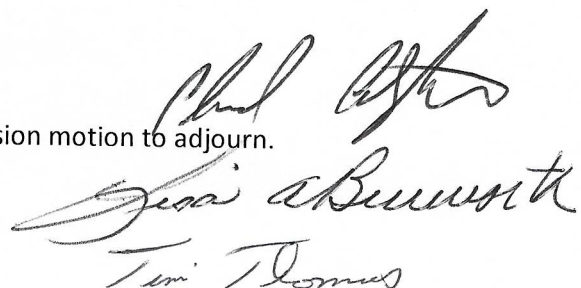 Chad
sion motion to adjourn.
Lisa A Burworth
Tim Thomas